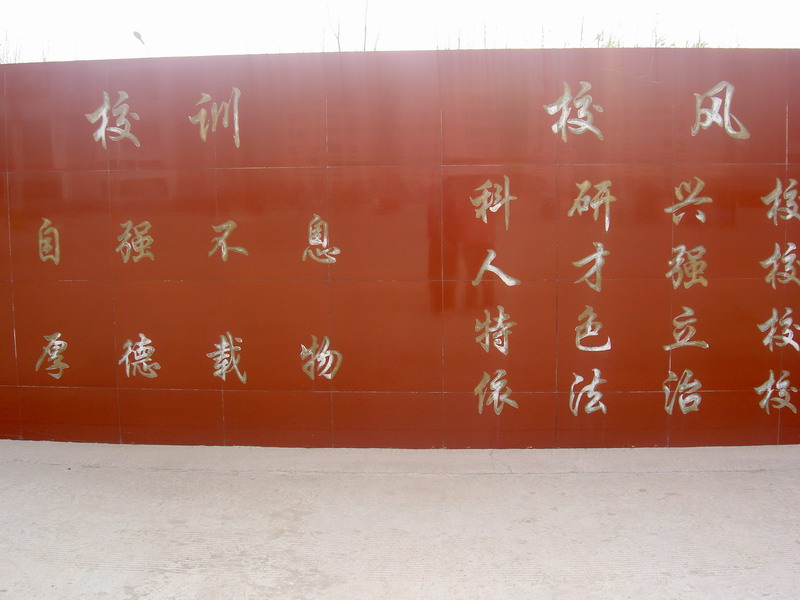 校训
自强不息
厚德载物
校风
科研兴校
人才强校
特色立校
依法治校